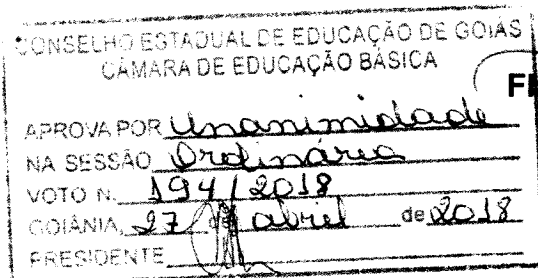 CONSELHO ESTADUAL DE EDUCAÇÃO DE GOIÁS
CÂMARA DE EDUCAÇÃO BÁSICA
APROVA POR Unanimidade
NA SESSÃO Ordinária
VOTO N. 194/2018
GOIÂNIA, 27 de abril de 2018
PRESIDENTE